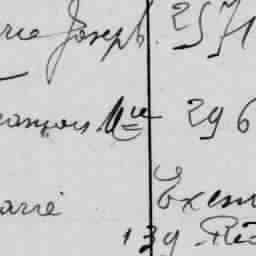 rie Joseph 2571
ançois Mie 296
arie Exem
139 Réc